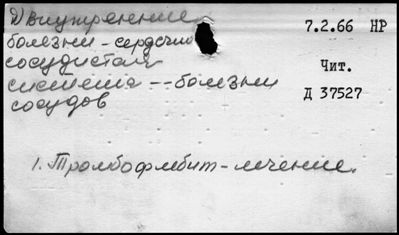 Д Внутренние
болезни - сердечно
сосудистая
система -- болезни
сосудов
7.2.66 НР
Чит.
Д 37527
1. Тромбофлебит - лечение.